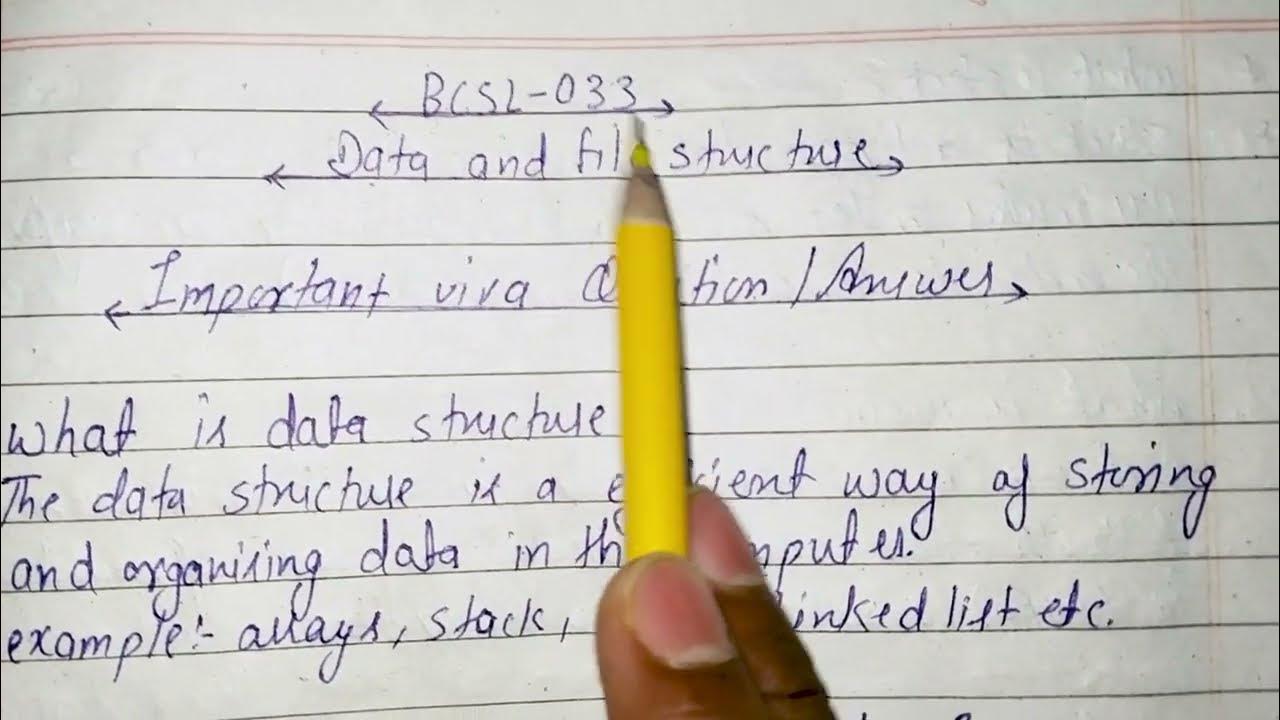 BCSL-033
Data and file structure
Important viva Question / Answer
What is data structure
The data structure is a efficient way of storing
and organising data in the computer.
example:- arrays, stack, linked list etc.